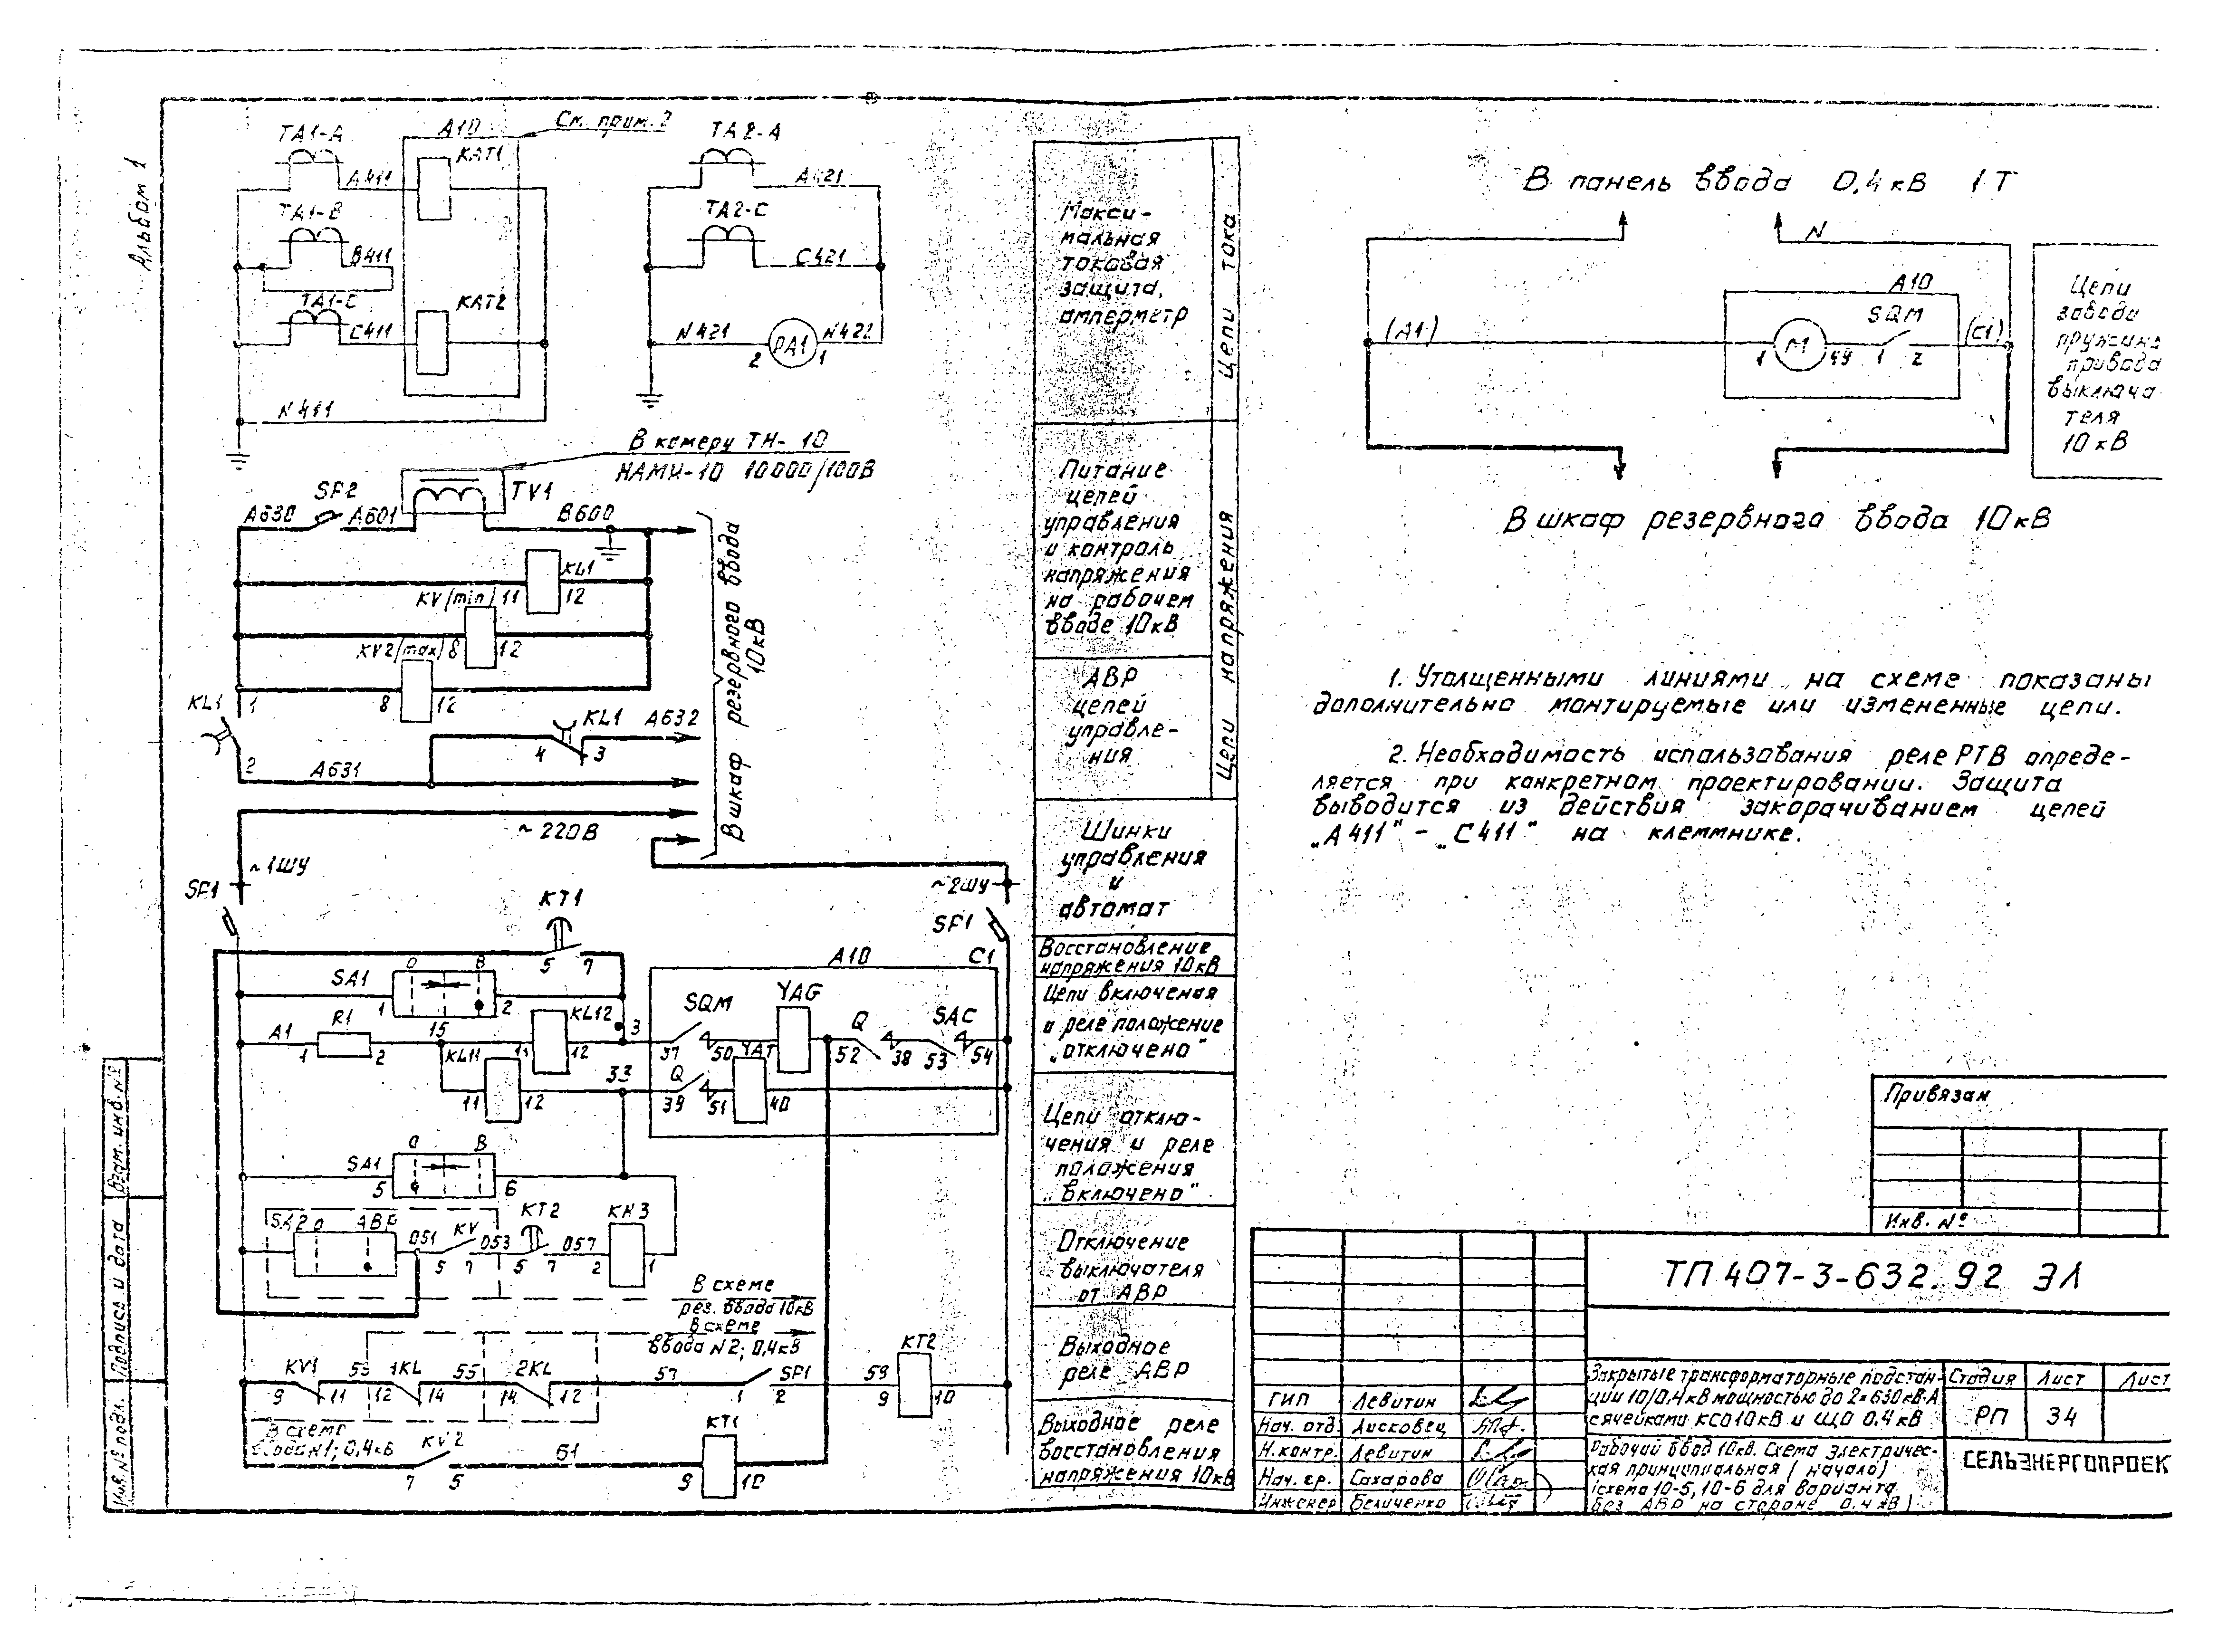 Альбом 1
См. прим. 2
ТА1-А
А10
КАТ1
А411
ТА1-В
В411
ТА1-С
КАТ2
С411
N411
ТА2-А
А421
ТА2-С
С421
N421
N422
2
РА1
1
В камеру ТН-10
НАМИ-10 10000/100В
SF2
TV1
А630
А601
В600
KL1
KV(min) 11
12
KV2(max) 8
12
KL1
1
8
12
KL1
А632
4
3
2
А631
В шкаф резервного ввода
10кВ
~220В
~1ШУ
SF1
~2ШУ
SF1
КТ1
5
7
SA1
О
В
1
2
А10
С1
А1
R1
1
2
15
KL12
11
12
3
SQM
YAG
37
50
Q
SAC
52
38
53
54
KL11
11
12
33
Q
YAT
39
51
40
SA1
О
В
5
6
SA2
О
АВР
051
KV
053
КТ2
057
КН3
5
7
5
7
2
1
В схеме
рез. ввода 10кВ
В схеме
ввода N2; 0,4кВ
KV1
1KL
55
2KL
57
SF1
59
КТ2
9
11
12
14
14
12
1
2
9
10
В схеме
ввода N1; 0,4кВ
KV2
61
КТ1
7
5
9
10
Макси-
мальная
токовая
защита,
амперметр
Цепи тока
Питание
цепей
управления
и контроль
напряжения
на рабочем
вводе 10кВ
АВР
цепей
управле-
ния
Цепи напряжения
Шинки
управления
и
автомат
Восстановление
напряжения 10кВ
Цепи включения
и реле положение
„отключено"
Цепи отклю-
чения и реле
положения
„включено"
Отключение
выключателя
от АВР
Выходное
реле АВР
Выходное реле
восстановления
напряжения 10кВ
В панель ввода 0,4кВ 1Т
N
А10
SQM
(А1)
1
М
49
1
2
(С1)
Цепи
завода
привода
выключа-
теля
10кВ
В шкаф резервного ввода 10кВ
1. Утолщенными линиями на схеме показаны
дополнительно монтируемые или измененные цепи.
2. Необходимость использования реле РТВ опреде-
ляется при конкретном проектировании. Защита
выводится из действия закорачиванием цепей
„А411" - „С411" на клеммнике.
Привязан
Инв. №
ТП 407-3-632.92 ЭЛ
Закрытые трансформаторные подстан-
ции 10/0,4кВ мощностью до 2×630кВ·А
с ячейками КСО 10кВ и ЩО 0,4кВ
Стадия
Лист
Лист
РП
34
Рабочий ввод 10кВ. Схема электричес-
кая принципиальная (начало)
(схема 10-5, 10-6 для варианта
без АВР на стороне 0,4кВ)
СЕЛЬЭНЕРГОПРОЕК
ГИП Левитин
Нач. отд. Лисковец
Н.контр. Левитин
Нач. гр. Сахарова
Инженер Беличенко
Взам. инв. №
Подпись и дата
Инв. № подл.